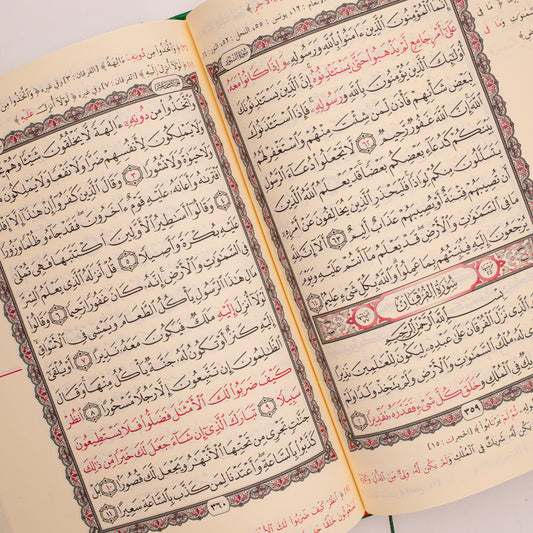 إِنَّمَا ٱلْمُؤْمِنُونَ ٱلَّذِينَ ءَامَنُوا۟ بِٱللَّهِ وَرَسُولِهِۦ وَإِذَا كَانُوا۟ مَعَهُۥ
عَلَىٰٓ أَمْرٍ جَامِعٍ لَّمْ يَذْهَبُوا۟ حَتَّىٰ يَسْتَـْٔذِنُوهُ إِنَّ ٱلَّذِينَ يَسْتَـْٔذِنُونَكَ
أُو۟لَـٰٓئِكَ ٱلَّذِينَ يُؤْمِنُونَ بِٱللَّهِ وَرَسُولِهِۦ فَإِذَا ٱسْتَـْٔذَنُوكَ
لِبَعْضِ شَأْنِهِمْ فَأْذَن لِّمَن شِئْتَ مِنْهُمْ وَٱسْتَغْفِرْ لَهُمُ
ٱللَّهَ إِنَّ ٱللَّهَ غَفُورٌ رَّحِيمٌ ٦٢ لَّا تَجْعَلُوا۟ دُعَآءَ ٱلرَّسُولِ
بَيْنَكُمْ كَدُعَآءِ بَعْضِكُم بَعْضًا قَدْ يَعْلَمُ ٱللَّهُ ٱلَّذِينَ
يَتَسَلَّلُونَ مِنكُمْ لِوَاذًا فَلْيَحْذَرِ ٱلَّذِينَ يُخَالِفُونَ عَنْ أَمْرِهِۦٓ
أَن تُصِيبَهُمْ فِتْنَةٌ أَوْ يُصِيبَهُمْ عَذَابٌ أَلِيمٌ ٦٣ أَلَآ إِنَّ لِلَّهِ
مَا فِى ٱلسَّمَـٰوَٰتِ وَٱلْأَرْضِ قَدْ يَعْلَمُ مَآ أَنتُمْ عَلَيْهِ وَيَوْمَ
يُرْجَعُونَ إِلَيْهِ فَيُنَبِّئُهُم بِمَا عَمِلُوا۟ وَٱللَّهُ بِكُلِّ شَىْءٍ عَلِيمٌ ٦٤
سُورَةُ الْفُرْقَانِ
بِسْمِ ٱللَّهِ ٱلرَّحْمَـٰنِ ٱلرَّحِيمِ
ٱلَّذِى نَزَّلَ ٱلْفُرْقَانَ عَلَىٰ عَبْدِهِۦ لِيَكُونَ لِلْعَـٰلَمِينَ نَذِيرًا ١
مُلْكُ ٱلسَّمَـٰوَٰتِ وَٱلْأَرْضِ وَلَمْ يَتَّخِذْ وَلَدًا وَلَمْ يَكُن
فِى ٱلْمُلْكِ وَخَلَقَ كُلَّ شَىْءٍ فَقَدَّرَهُۥ تَقْدِيرًا
٣٥٩
وَٱتَّخَذُوا۟ مِن دُونِهِۦٓ ءَالِهَةً لَّا يَخْلُقُونَ شَيْـًٔا وَهُمْ
وَلَا يَمْلِكُونَ لِأَنفُسِهِمْ ضَرًّا وَلَا نَفْعًا وَلَا يَمْلِكُونَ
وَلَا حَيَوٰةً وَلَا نُشُورًا ٣ وَقَالَ ٱلَّذِينَ كَفَرُوٓا۟ إِنْ هَـٰذَآ إِلَّآ إِفْكٌ
وَأَعَانَهُۥ عَلَيْهِ قَوْمٌ ءَاخَرُونَ فَقَدْ جَآءُو ظُلْمًا وَزُورًا
٤ وَقَالُوٓا۟ أَسَـٰطِيرُ ٱلْأَوَّلِينَ ٱكْتَتَبَهَا فَهِىَ تُمْلَىٰ
عَلَيْهِ بُكْرَةً وَأَصِيلًا ٥ قُلْ أَنزَلَهُ ٱلَّذِى يَعْلَمُ ٱلسِّرَّ
فِى ٱلسَّمَـٰوَٰتِ وَٱلْأَرْضِ إِنَّهُۥ كَانَ غَفُورًا رَّحِيمًا ٦ وَقَالُوا۟
مَالِ هَـٰذَا ٱلرَّسُولِ يَأْكُلُ ٱلطَّعَامَ وَيَمْشِى فِى ٱلْأَسْوَاقِ
لَوْلَآ أُنزِلَ إِلَيْهِ مَلَكٌ فَيَكُونَ مَعَهُۥ نَذِيرًا ٧ أَوْ يُلْقَىٰٓ
إِلَيْهِ كَنزٌ أَوْ تَكُونُ لَهُۥ جَنَّةٌ يَأْكُلُ مِنْهَا وَقَالَ
ٱلظَّـٰلِمُونَ إِن تَتَّبِعُونَ إِلَّا رَجُلًا مَّسْحُورًا ٨ ٱنظُرْ
كَيْفَ ضَرَبُوا۟ لَكَ ٱلْأَمْثَـٰلَ فَضَلُّوا۟ فَلَا يَسْتَطِيعُونَ
سَبِيلًا ٩ تَبَارَكَ ٱلَّذِىٓ إِن شَآءَ جَعَلَ لَكَ خَيْرًا مِّن ذَٰلِكَ
جَنَّـٰتٍ تَجْرِى مِن تَحْتِهَا ٱلْأَنْهَـٰرُ وَيَجْعَل لَّكَ قُصُورًۢا ١٠ بَلْ
كَذَّبُوا۟ بِٱلسَّاعَةِ وَأَعْتَدْنَا لِمَن كَذَّبَ بِٱلسَّاعَةِ سَعِيرًا ١١
٣٦٠